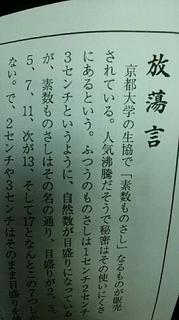 放蕩言
京都大学の生協で「素数ものさし」なるものが販売
されている。人気沸騰だそうで秘密はその使いにくさ
にあるという。ふつうのものさしは1センチ2センチ
3センチというように、自然数が目盛りになっている
が、素数ものさしはその名の通り、目盛りが2、3、
5、7、11、次が13、そして17となんとこの7つしか
ない。で、2センチや3センチはそのまま目盛りを